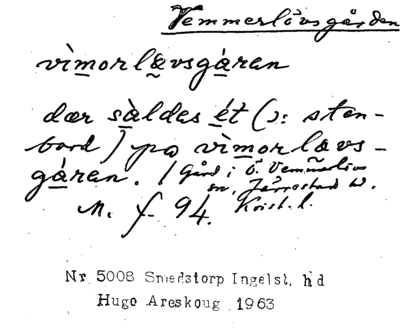 Vemmerlövsgården
vìmorlævsgàren
dær sàldes ét (ɔ: sten-
bord) på vìmorlævs-
gàren. / Gård i Ö. Vemmerlövs
sn, Järrestad hd.
M. f. 94. Krist. l.
Nr 5008 Smedstorp Ingelst. hd
Hugo Areskoug 1963